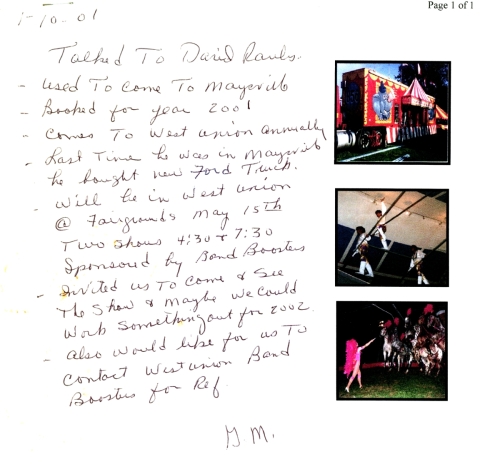 Page 1 of 1
1-10-01
Talked To David Rawls.
- Used To Come To Maysville
- Booked for year 2001
- Comes To West Union annually
- Last Time he was in Maysville
he bought new Ford Truck.
- Will be in West Union
@ Fairgrounds May 15th
Two shows 4:30 & 7:30
Sponsored by Band Boosters
- Invited us To Come & See
The Show & Maybe we Could
Work Something out for 2002.
- Also would like for us To
Contact West Union Band
Boosters for Ref.
G.M.